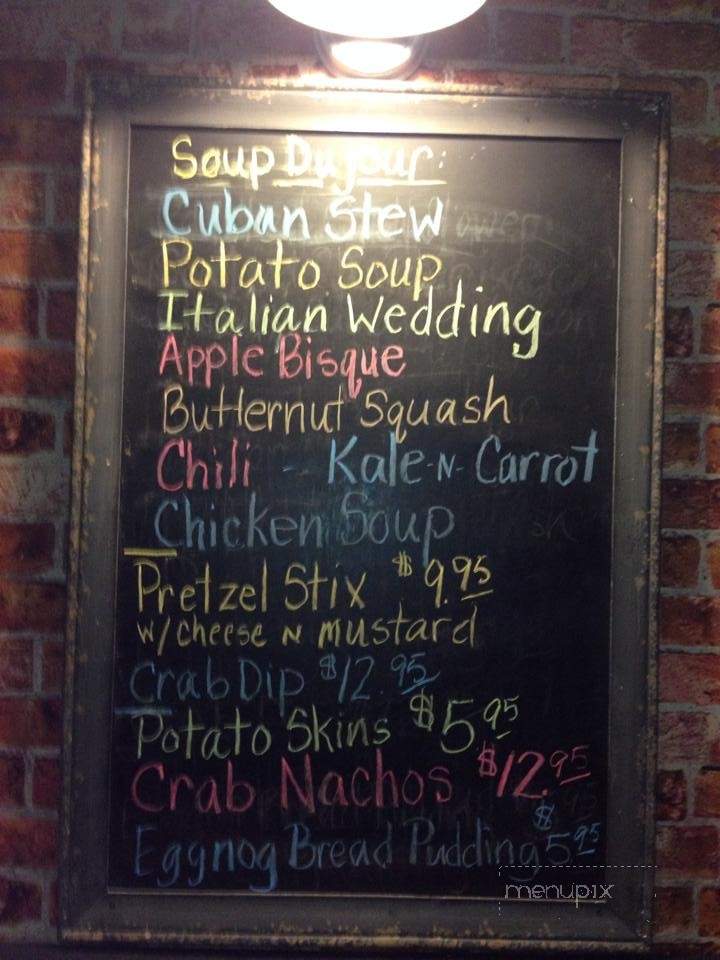 Soup Du jour:
Cuban Stew
Potato Soup
Italian Wedding
Apple Bisque
Butternut Squash
Chili -- Kale-N-Carrot
Chicken Soup
Pretzel Stix $9.95
w/ cheese N mustard
Crab Dip $12.95
Potato Skins $5.95
Crab Nachos $12.95
Eggnog Bread Pudding $5.95
menupix